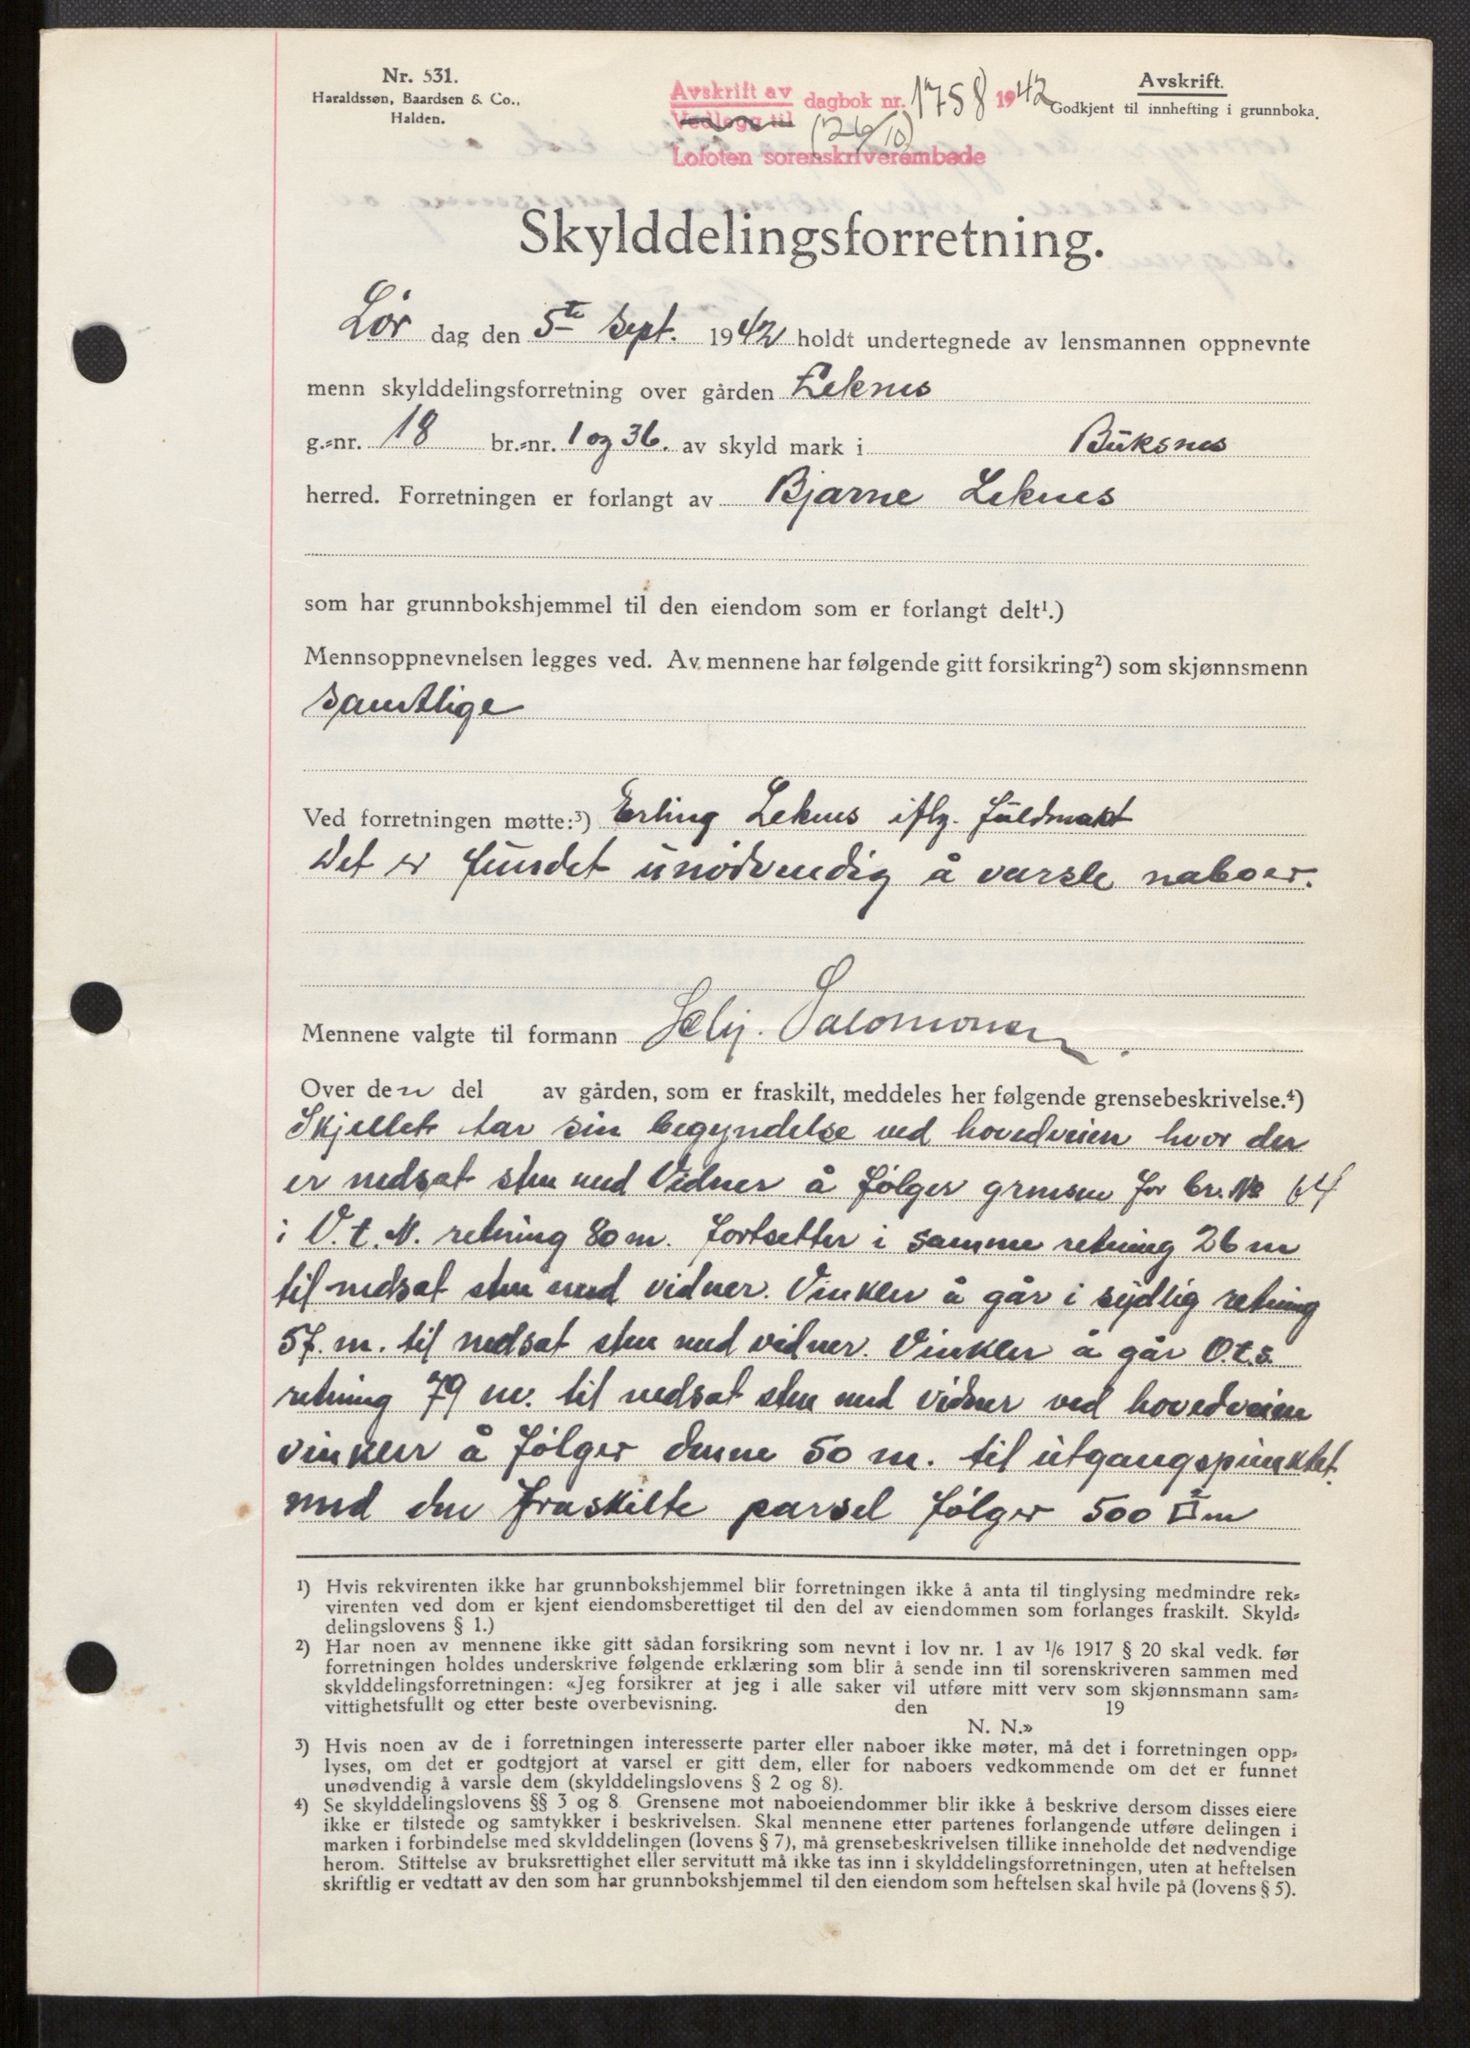 Nr. 531.
Haraldssøn, Baardsen & Co.,
Halden.
Avskrift av
Vedlegg til
dagbok nr. 1758 1942
(26/10)
Lofoten sorenskriverembede
Avskrift.
Godkjent til innhefting i grunnboka.
Skylddelingsforretning.
Lør dag den 5te Sept. 1942 holdt undertegnede av lensmannen oppnevnte
menn skylddelingsforretning over gården Leknes
g.=nr. 18 br.=nr. 1 og 36. av skyld mark i Buksnes
herred. Forretningen er forlangt av Bjarne Leknes
som har grunnbokshjemmel til den eiendom som er forlangt delt¹.)
Mennsoppnevnelsen legges ved. Av mennene har følgende gitt forsikring²) som skjønnsmenn
samtlige
Ved forretningen møtte:³) Erling Leknes iflg. fuldmakt
Det er fundet unødvendig å varsle naboer.
Mennene valgte til formann Salomonsen
Over den del av gården, som er fraskilt, meddeles her følgende grensebeskrivelse.⁴)
Skjellet tar sin begyndelse ved hovedveien hvor der
er nedsat sten med Vidner å følger grensen for br. № 64
i V.t.N. retning 80 m. fortsetter i samme retning 26 m
til nedsat sten med vidner. Vinkler å går i sydlig retning
57. m. til nedsat sten med vidner. Vinkler å går O.t.s.
retning 79 m. til nedsat sten med vidner ved hovedveien
vinkler å følger denne 50 m. til utgangspunktet.
med den fraskilte parsel følger 500 □ m
¹) Hvis rekvirenten ikke har grunnbokshjemmel blir forretningen ikke å anta til tinglysing medmindre rek=
virenten ved dom er kjent eiendomsberettiget til den del av eiendommen som forlanges fraskilt. Skyld=
delingslovens § 1.)
²) Har noen av mennene ikke gitt sådan forsikring som nevnt i lov nr. 1 av ¹/₆ 1917 § 20 skal vedk. før
forretningen holdes underskrive følgende erklæring som blir å sende inn til sorenskriveren sammen med
skylddelingsforretningen: «Jeg forsikrer at jeg i alle saker vil utføre mitt verv som skjønnsmann sam=
vittighetsfullt og etter beste overbevisning. den 19
N. N.»
³) Hvis noen av de i forretningen interesserte parter eller naboer ikke møter, må det i forretningen opp=
lyses, om det er godtgjort at varsel er gitt dem, eller for naboers vedkommende om det er funnet
unødvendig å varsle dem (skylddelingslovens § 2 og 8).
⁴) Se skylddelingslovens §§ 3 og 8. Grensene mot naboeiendommer blir ikke å beskrive dersom disses eiere
ikke er tilstede og samtykker i beskrivelsen. Skal mennene etter partenes forlangende utføre delingen i
marken i forbindelse med skylddelingen (lovens § 7), må grensebeskrivelsen tillike inneholde det nødvendige
herom. Stittelse av bruksrettighet eller servitutt må ikke tas inn i skylddelingsforretningen, uten at heftelsen
skriftlig er vedtatt av den som har grunnbokshjemmel til den eiendom som heftelsen skal hvile på (lovens § 5).